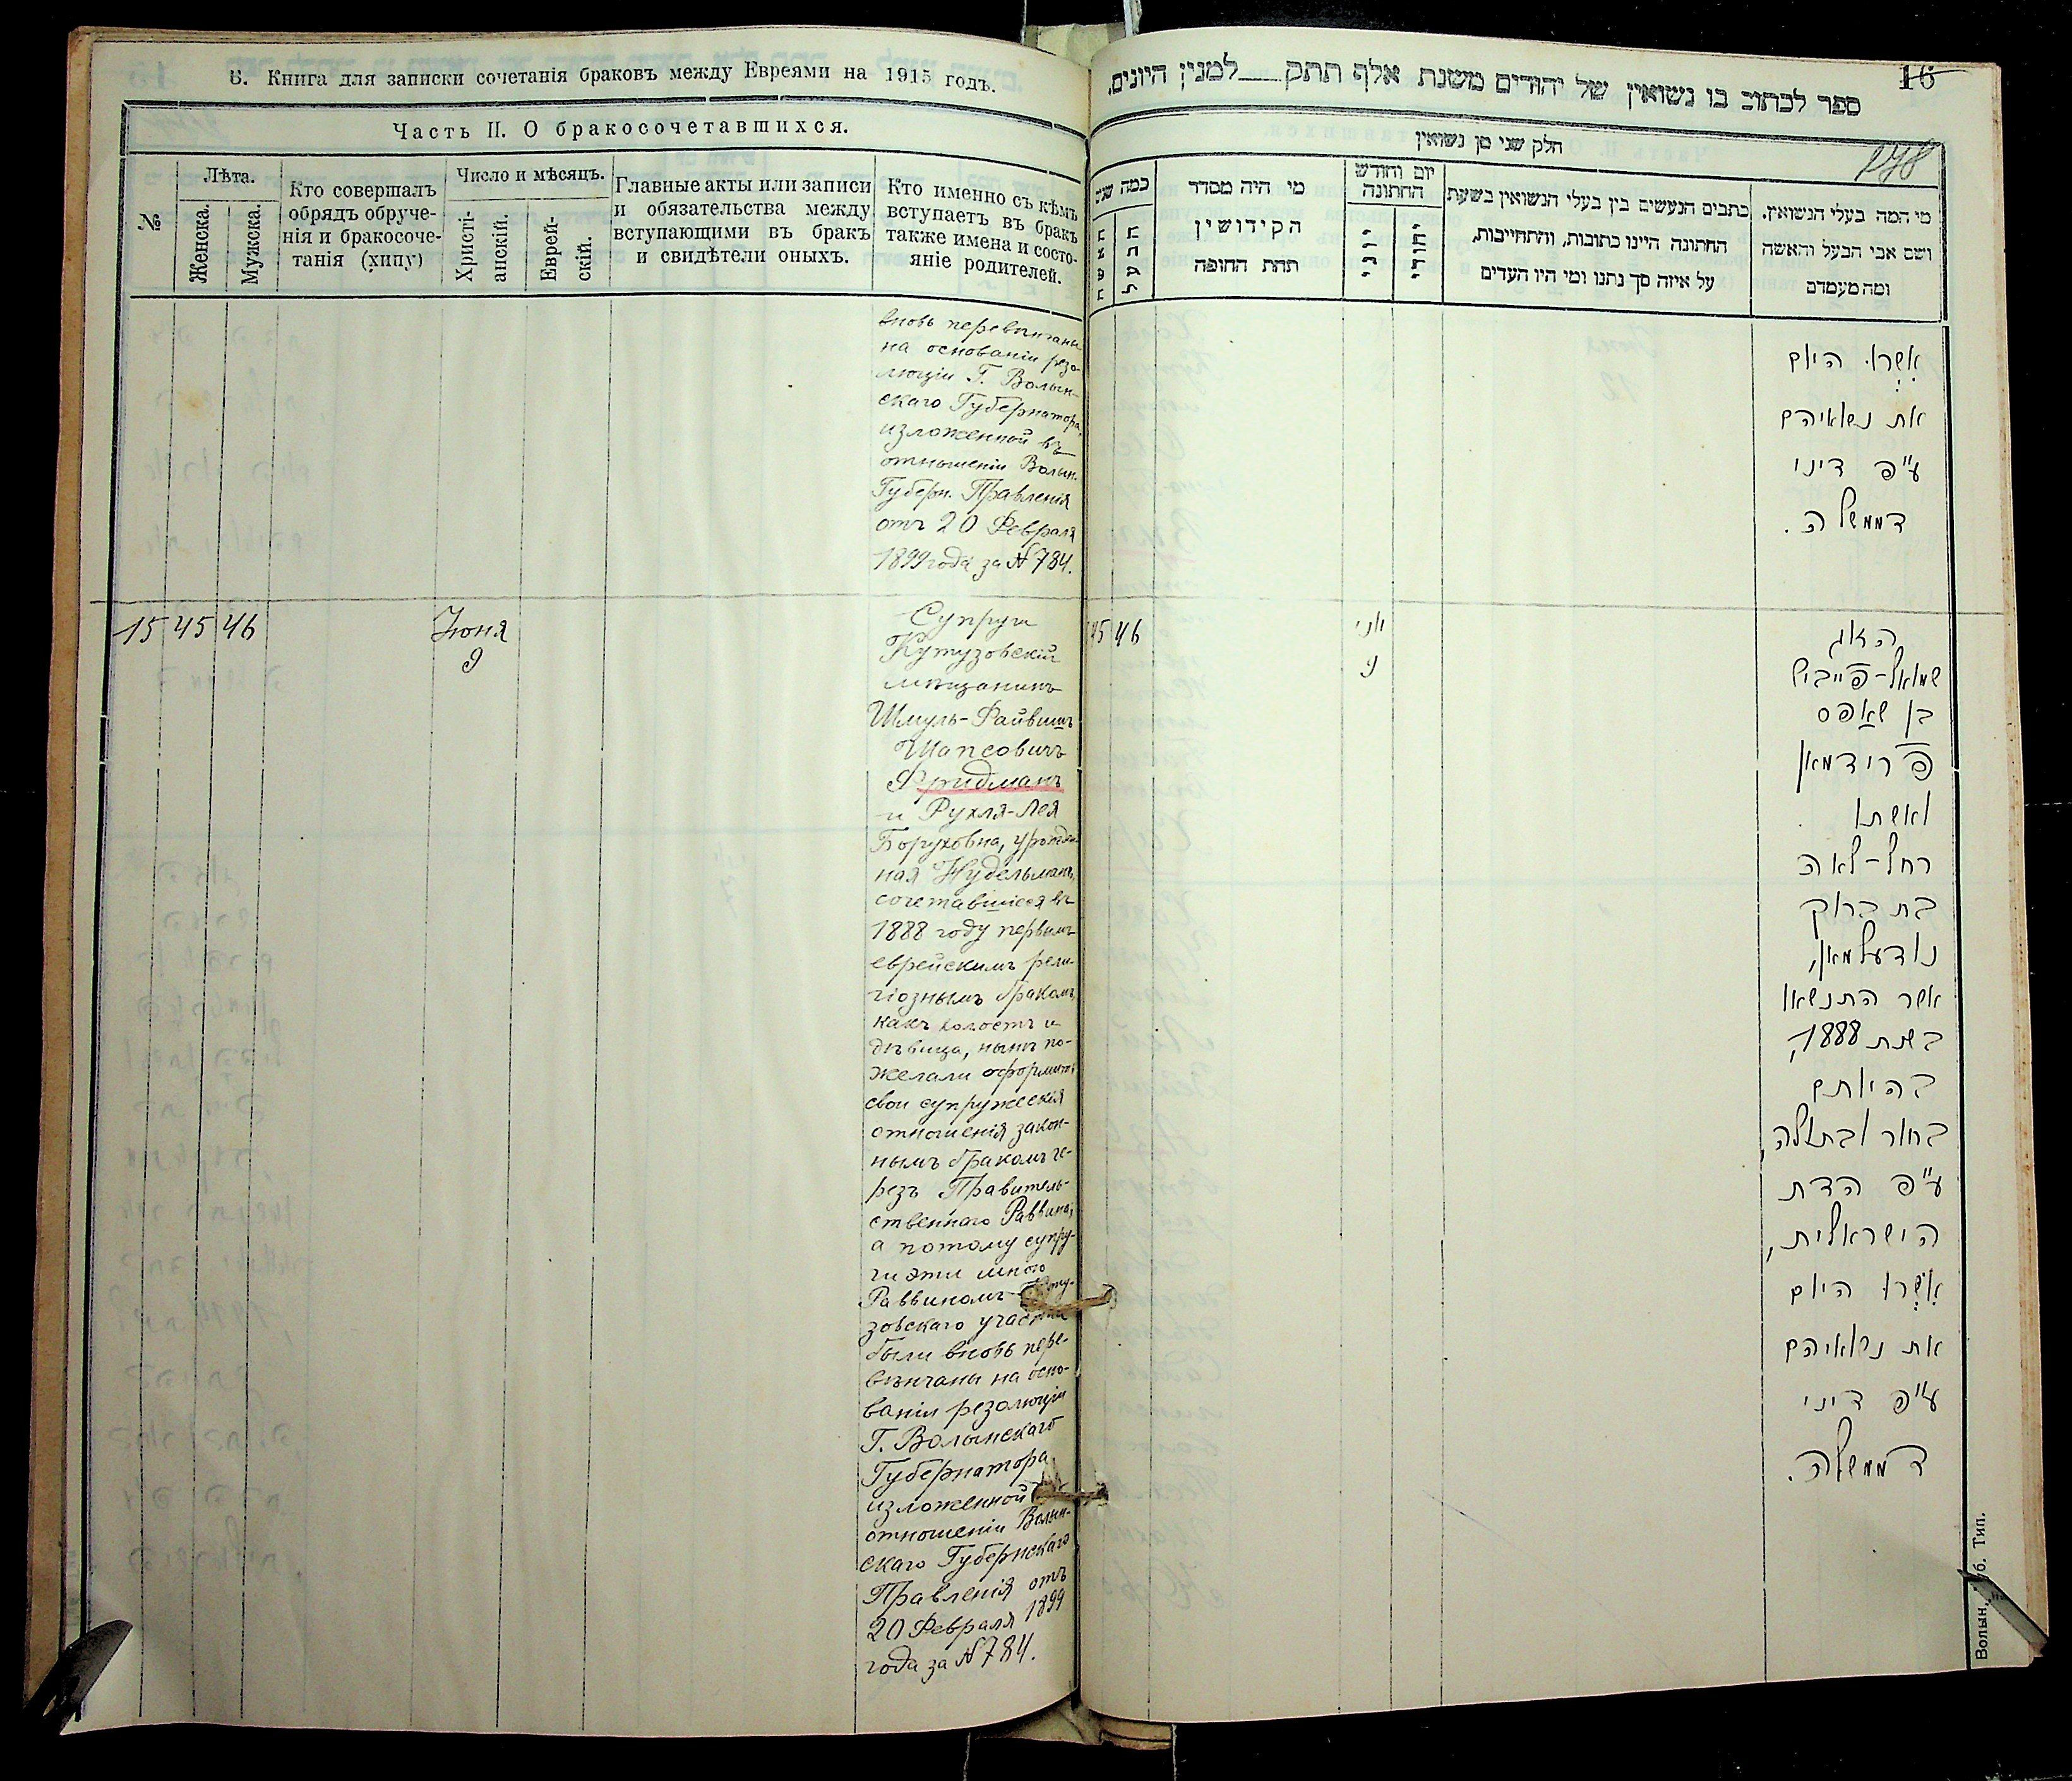 В. Книга для записки сочетанія браковъ между Евреями на 1915 годъ.
Часть II. О бракосочетавшихся.
№
Лѣта.
Женска.
Мужска.
Кто совершалъ
обрядъ обруче-
нія и бракосоче-
танія (хипу)
Число и мѣсяцъ.
Христі-
анскій.
Еврей-
скій.
Главные акты или записи
и обязательства между
вступающими въ бракъ
и свидѣтели оныхъ.
Кто именно съ кѣмъ
вступаетъ въ бракъ
также имена и состо-
яніе родителей.
вновь перевѣнчаны
на основаніи резо-
люціи Г. Волын-
скаго Губернатора,
изложенной въ
отношеніи Волын.
Губерн. Правленія
отъ 20 Февраля
1899 года за № 784.
15 45 46
Іюня
9
Супруги
Кутузовскій
мѣщанинъ
Шмуль-Файвишъ
Шапсовичъ
Фридманъ
и Рухля-Лея
Боруховна, урожден
ная Нудельманъ,
сочетавшіеся въ
1888 году первымъ
еврейскимъ рели-
гіознымъ бракомъ,
какъ холостъ и
дѣвица, нынѣ по-
желали оформить
свои супружескія
отношенія закон-
нымъ бракомъ че-
резъ Правитель-
ственнаго Раввина,
а потому супру-
ги эти мною
Раввиномъ Куту-
зовскаго участка
были вновь пере-
вѣнчаны на осно-
ваніи резолюціи
Г. Волынскаго
Губернатора,
изложенной
отношеніи Волын-
скаго Губернскаго
Правленія отъ
20 Февраля 1899
года за № 784.
16
ספר לכתוב בו נשואין של יהודים משנת אלף תתק למנין היונים.
חלק שני מן נשואין
178
מי המה בעלי הנשואין.
ושם אבי הבעל והאשה
ומה מעמדם
כתבים הנעשים בין בעלי הנשואין בשעת
החתונה היינו כתובות, והתחייבות,
על איזה סך נתנו ומי היו העדים
יום וחודש
החתונה
יהודי
יוני
מי היה מסדר
הקידושין
תחת החופה
כמה שנים
הבעל
האשה
אשרו היום
את נשואיהם
ע"פ דיני
דממשלה.
45 46
יוני
9
הזוג
שמואל-פייביש
בן שאפס
פרידמאן
ואשתו
רחל-לאה
בת ברוך
נודעלמאן,
אשר התנשאו
בשנת 1888,
בהיותם
בחור ובתולה,
ע"פ הדת
הישראלית,
אשרו היום
את נשואיהם
ע"פ דיני
דממשלה.
Волын. Губ. Тип.